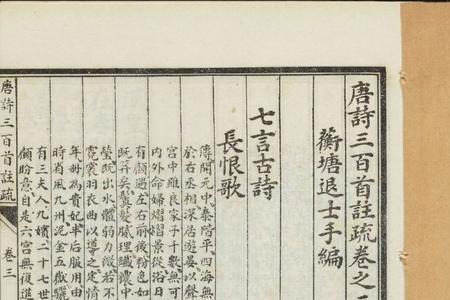 唐詩三百首註疏卷之
蘅塘退士手編
七言古詩
長恨歌
傳開元中泰階平四海無
於右丞相深居遊宴以聲
宮中雖良家子千數無可
內外命婦熠燿景從浴日
有顧遇左右前後粉色如
既笄矣鬒髮膩理纖穠中
瑩既出水體弱力微若不
霓裳羽衣曲以導之定情
年冊為貴妃半后服用由
時省風九州泥金五嶽驪
有三夫人九嬪二十七世
傾盼意自是六宮無復進
唐詩三百首註疏 卷三